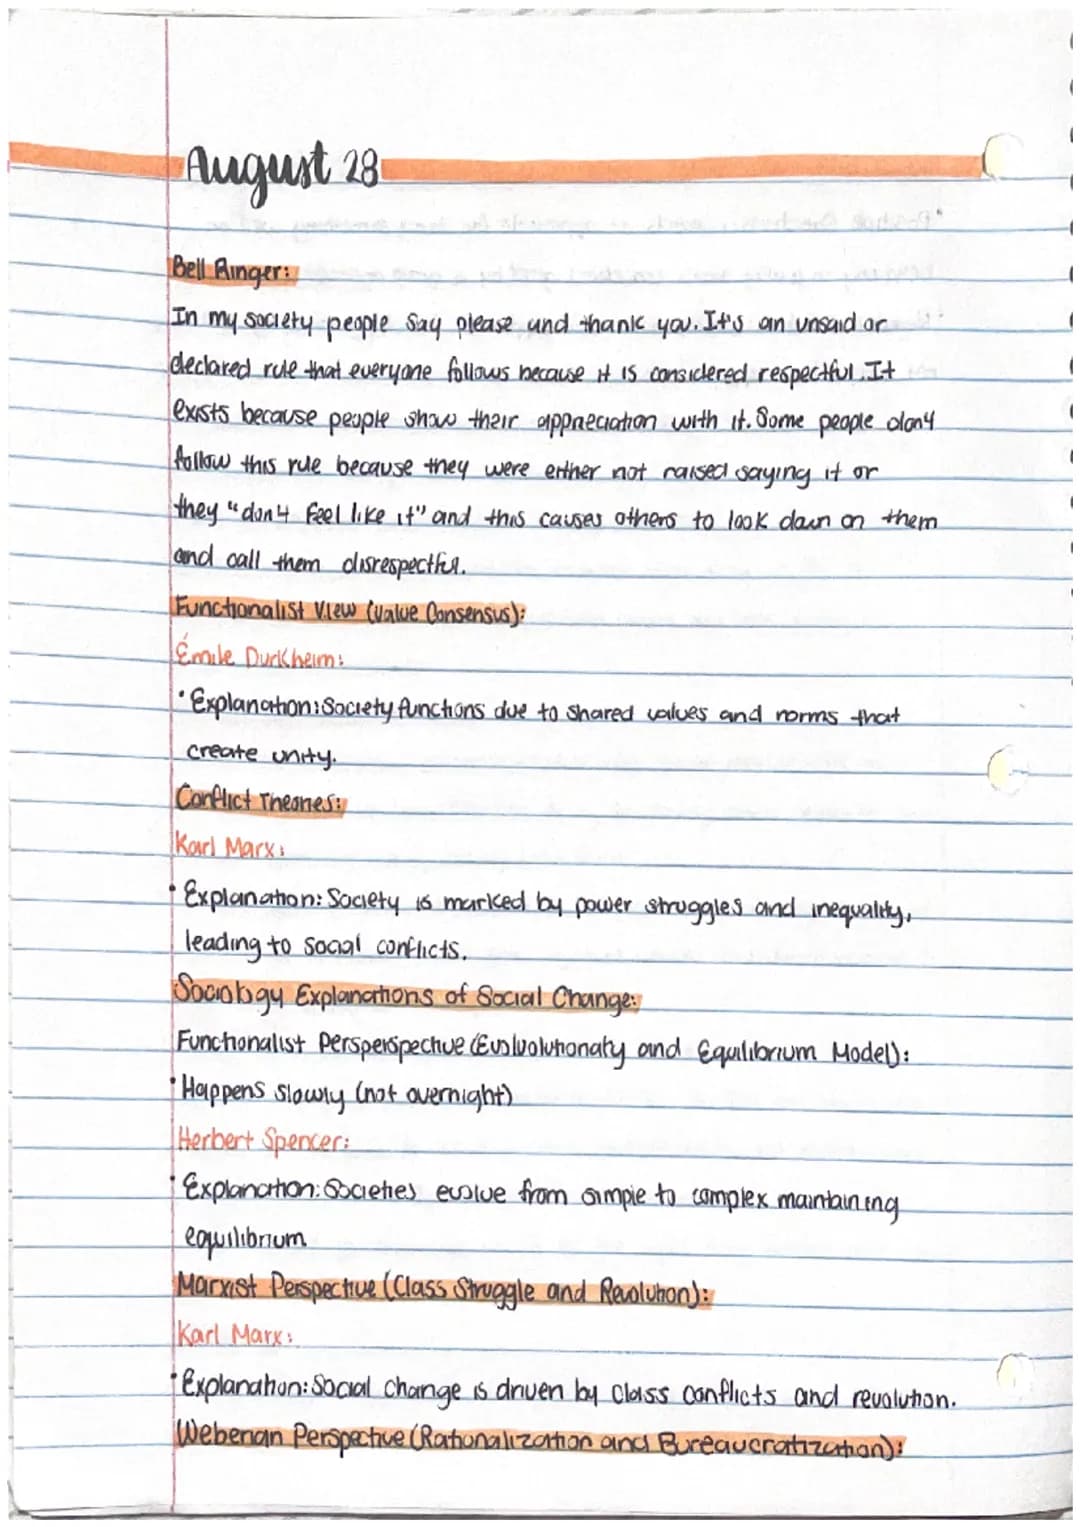 August 28
Bell Ringer:
In my society people say please and thank you. It's an unsaid or
declared rule that everyone follows because it is considered respectful. It
exists because people show their appreciation with it. Some people don't
follow this rule because they were either not raised saying it or
they "don't feel like it" and this causes others to look down on them
and call them disrespectful.
Functionalist View (Value Consensus):
Émile Durkheim:
• Explanation: Society functions due to shared values and norms that
create unity.
Conflict Theories:
Karl Marx:
• Explanation: Society is marked by power struggles and inequality,
leading to social conflicts.
Sociology Explanations of Social Change:
Functionalist Persperspective (Evolvolutionaty and Equilibrium Model):
• Happens slowly (not overnight)
Herbert Spencer:
• Explanation: Societies evolve from simple to complex maintaining
equilibrium
Marxist Perspective (Class Struggle and Revolution):
Karl Marx:
• Explanation: Social change is driven by class conflicts and revolution.
Weberian Perspective (Rationalization and Bureaucratization):